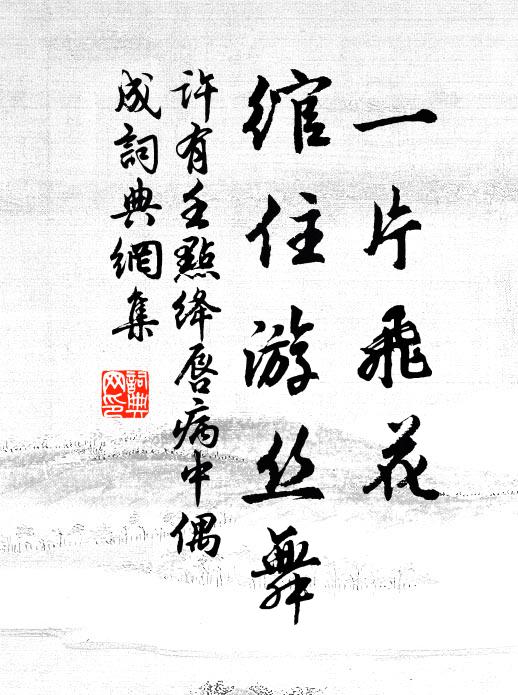 一片飛花
綰住游丝舞
許有壬點绛唇病中偶
成詞典網集
詞典
网印